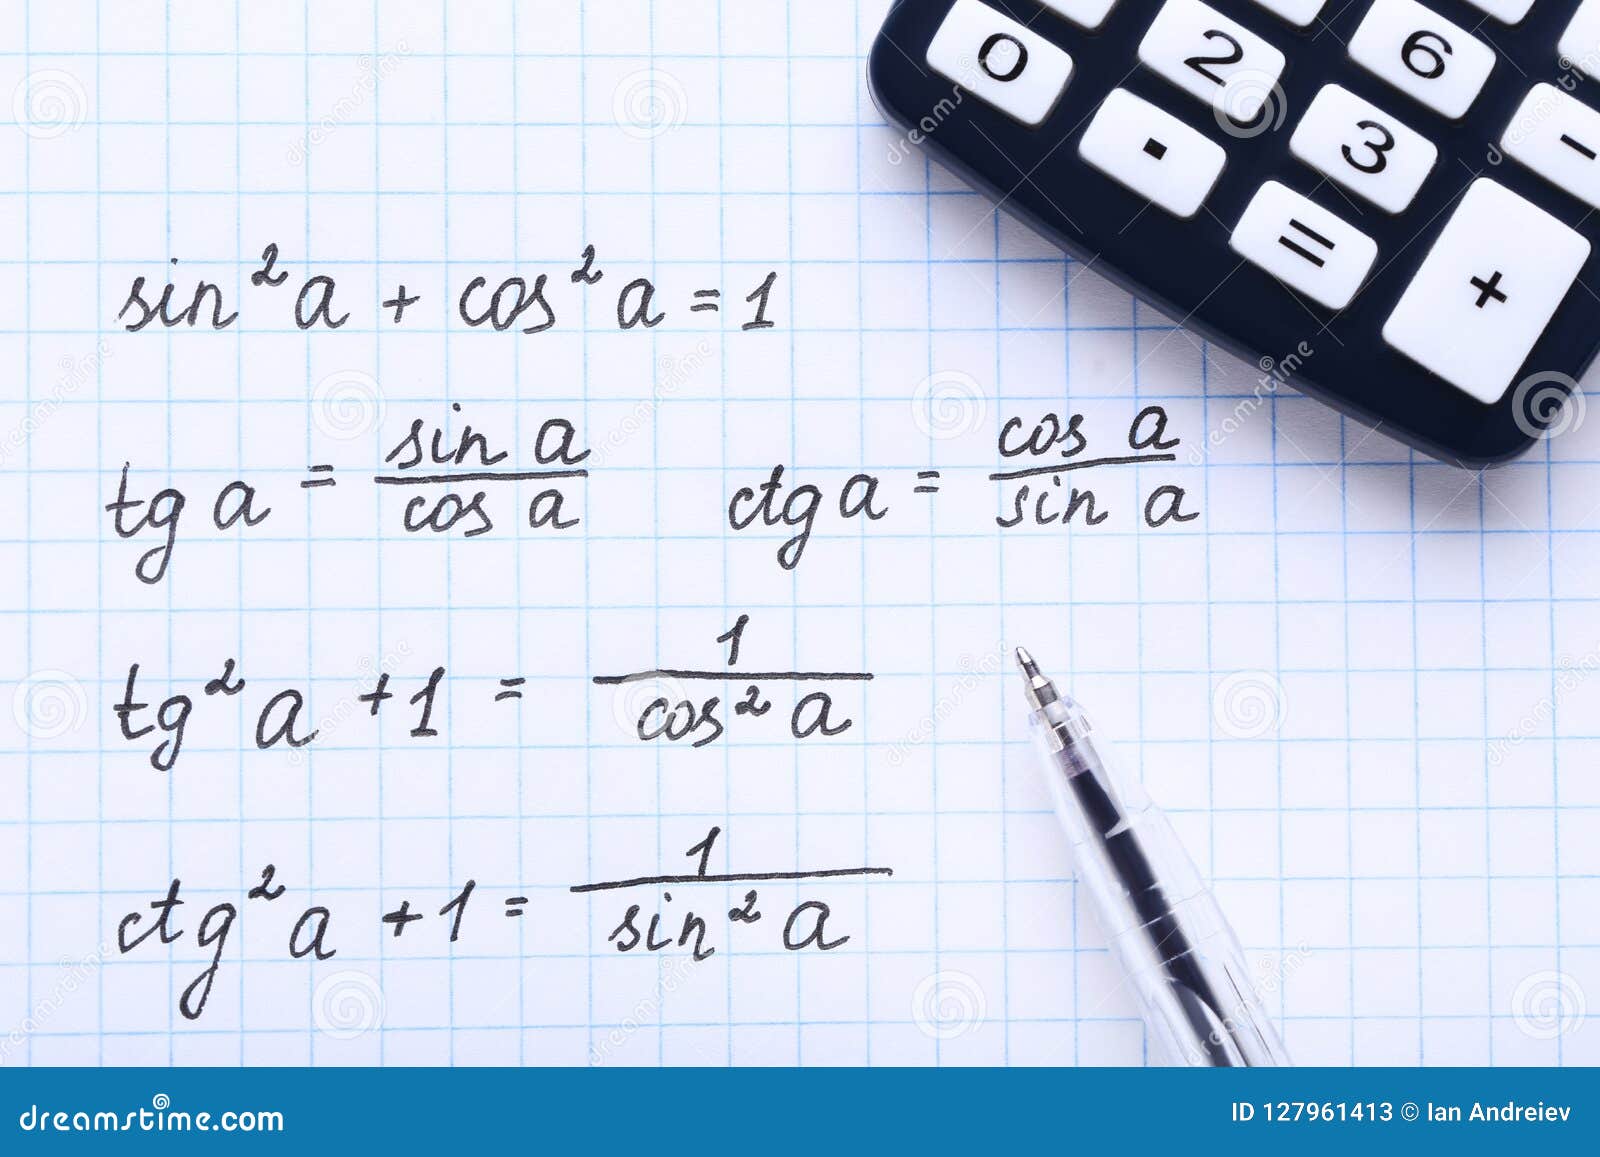 0 2 6
. 3 -
= +
sin²a + cos²a = 1
tg a = sin a / cos a ctg a = cos a / sin a
tg²a + 1 = 1 / cos²a
ctg²a + 1 = 1 / sin²a
dreamstime.com ID 127961413 © Ian Andreiev